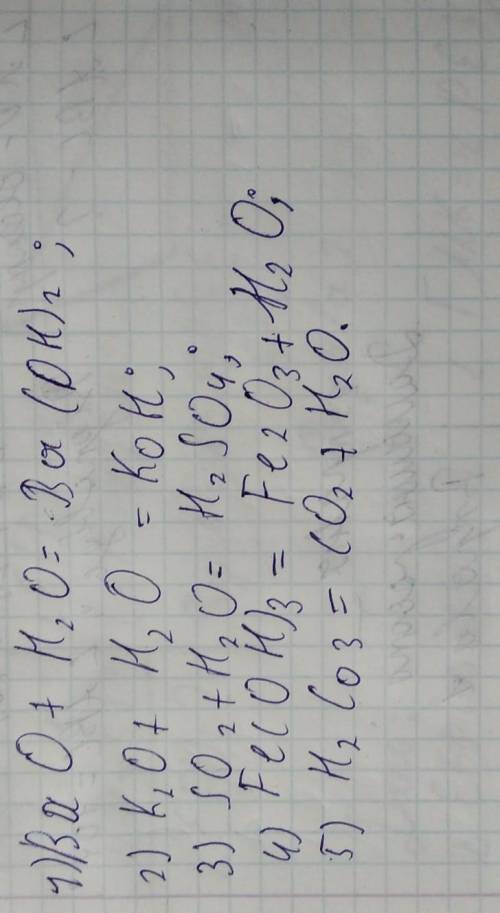 1) BaO + H₂O = Ba(OH)₂;
2) K₂O + H₂O = KOH;
3) SO₂ + H₂O = H₂SO₄;
4) Fe(OH)₃ = Fe₂O₃ + H₂O;
5) H₂CO₃ = CO₂ + H₂O.